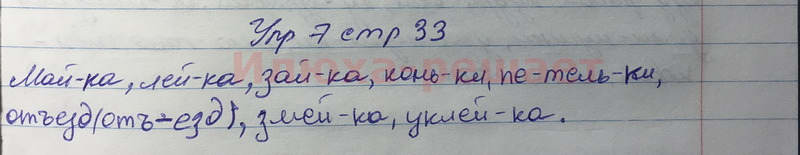 Упр 7 стр 33
Илюха решает
Май-ка, лей-ка, зай-ка, конь-ки, пе-тель-ки,
отъезд(отъ-езд), змей-ка, уклей-ка.